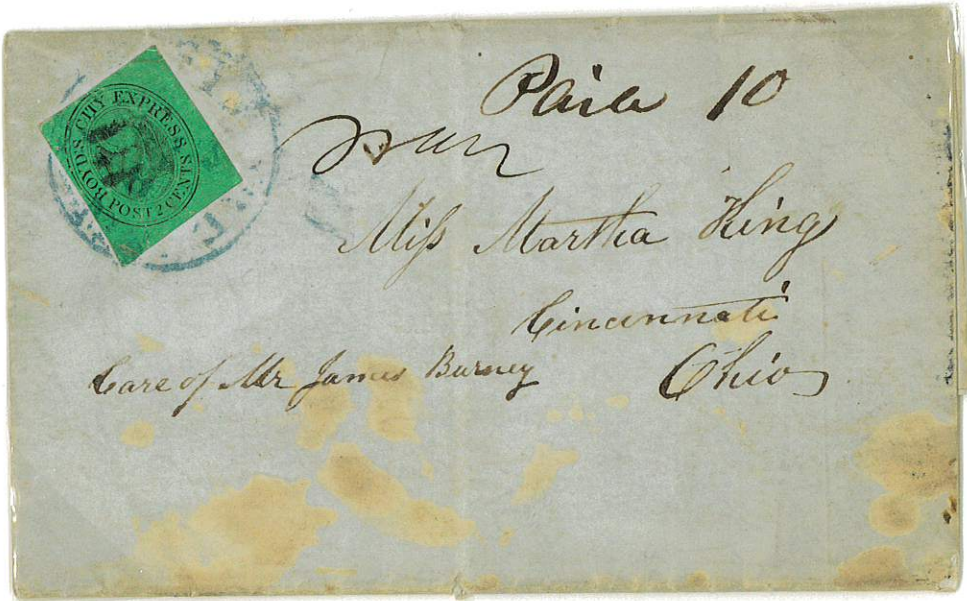 BOYD'S CITY EXPRESS POST 2 CENTS
Paid 10
Miss Martha King
Cincinnati
Care of Mr James Burney
Ohio